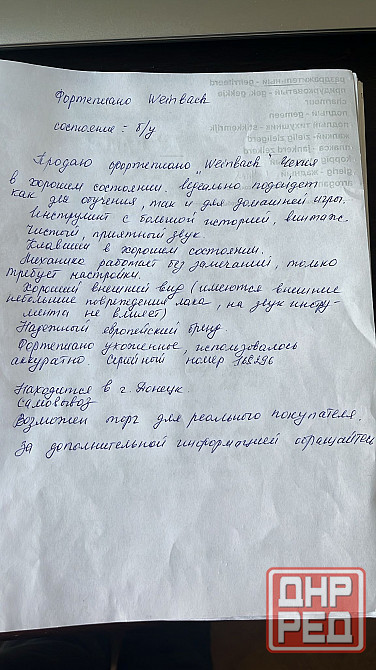 Фортепиано Weinbach
состояние = б/у
Продаю фортепиано "Weinback" Чехия
в хорошем состоянии. Идеально подойдёт
как для обучения, так и для домашней игры.
Инструмент с большой историей, винтаж.
Чистый, приятный звук.
Клавиши в хорошем состоянии.
Механика работает без замечаний, только
требует настройки.
Хороший внешний вид (имеются внешние
небольшие повреждения лака, на звук инстру-
мента не влияет)
Надежный европейский бренд.
Фортепиано ухоженное, использовалось
аккуратно. Серийный номер
Находится в г. Донецк.
Самовывоз
Возможен торг для реального покупателя.
За дополнительной информацией обращайтесь
ДНР
РЕД